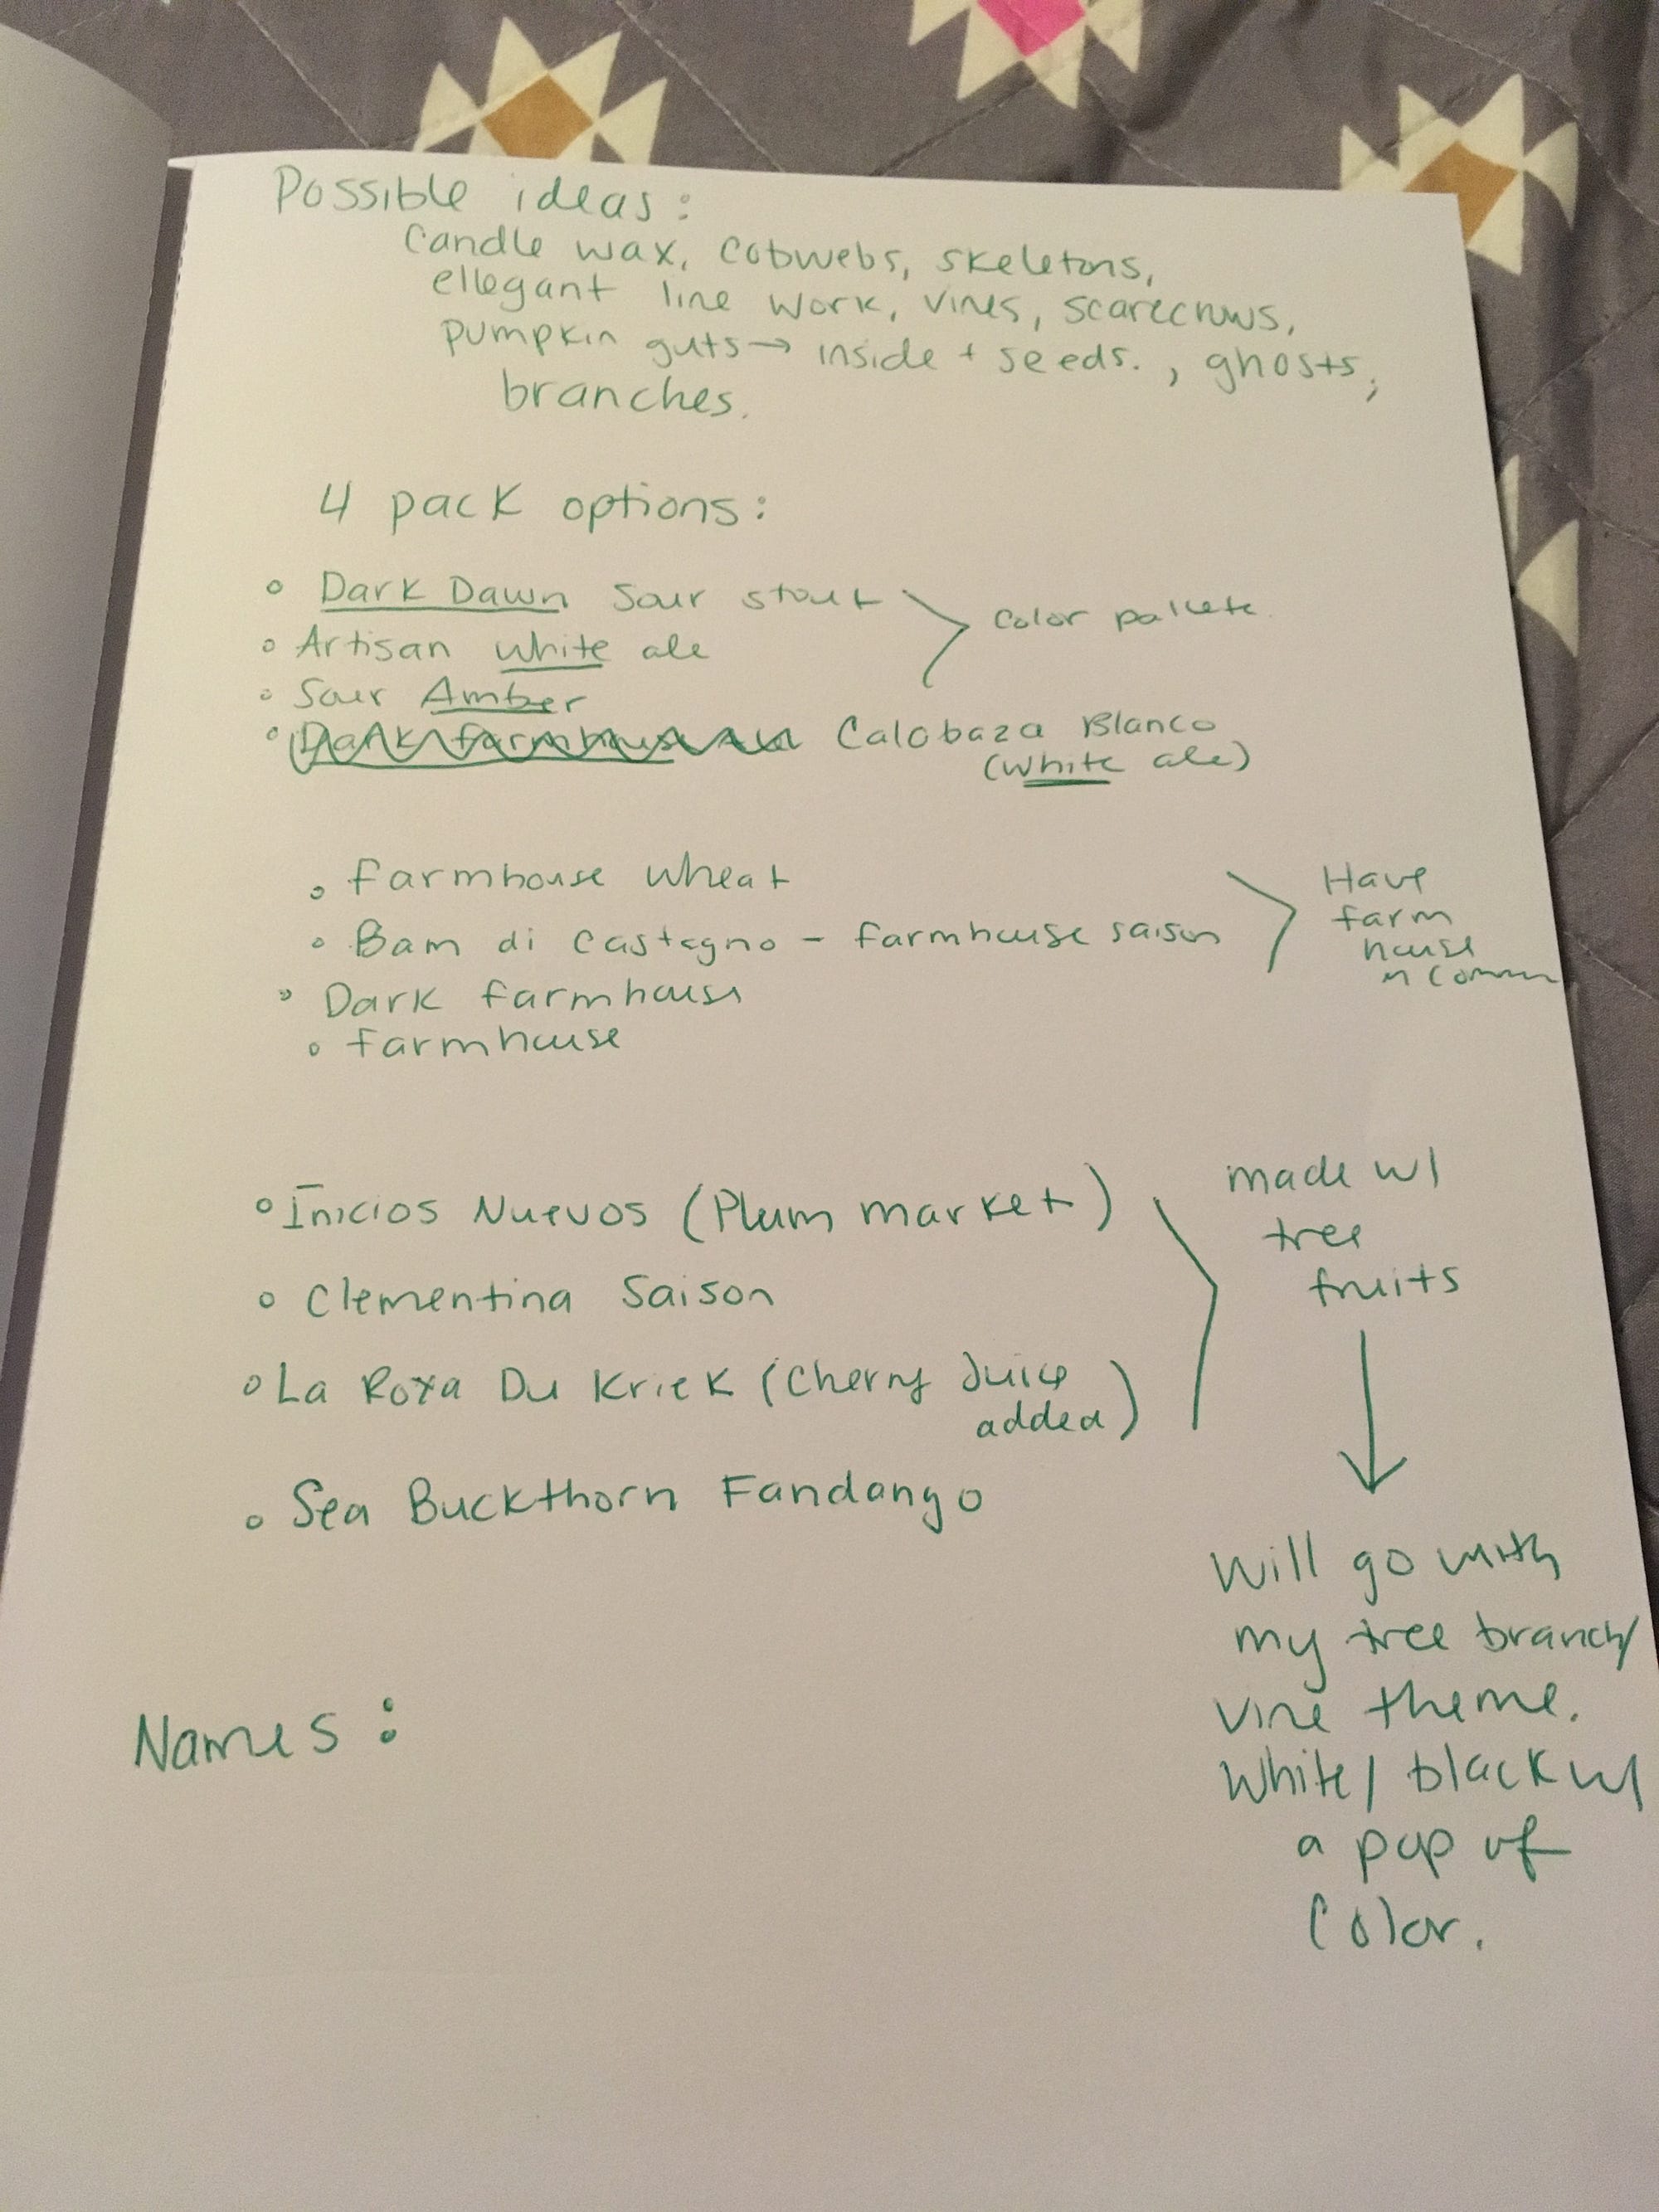 Possible ideas:
Candle wax, cobwebs, skeletons,
ellegant line work, vines, scarecrows,
pumpkin guts → inside + seeds. , ghosts,
branches.
4 pack options:
Dark Dawn Sour stout
color pallete
Artisan white ale
Sour Amber
Dark farmhouse ale Calobaza Blanco
(white ale)
farmhouse wheat
Have
farm
house
n common
Bam di Castagno - farmhouse saison
Dark farmhouse
farmhouse
Inicios Nuevos (Plum market)
made w/
tree
fruits
Clementina Saison
La Roxa Du Kriek (Cherry Juice
added)
Sea Buckthorn Fandango
Will go with
my tree branch/
vine theme.
White/ black w/
a pop of
Color.
Names: